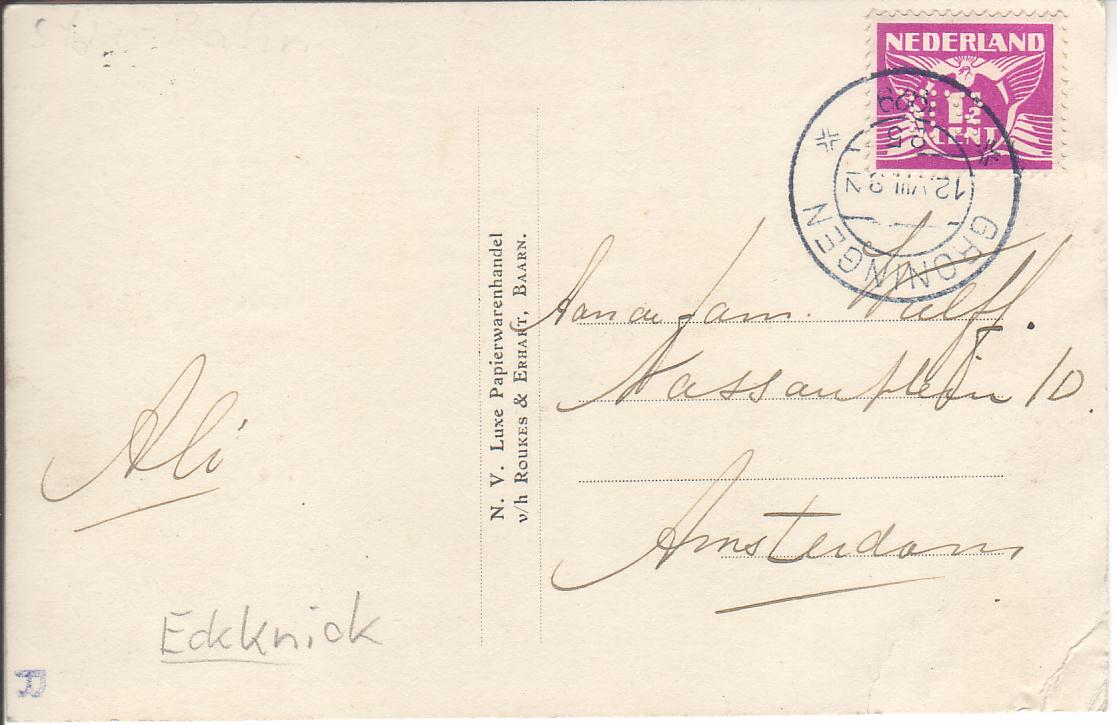 NEDERLAND
1½
CENT
GRONINGEN
12 VIII 3
1939
N. V. Luxe Papierwarenhandel
v/h ROUKES & ERHART, BAARN.
Aan de fam. Wolff.
Nassauplein 10.
Amsterdam
Ali
Eckknick